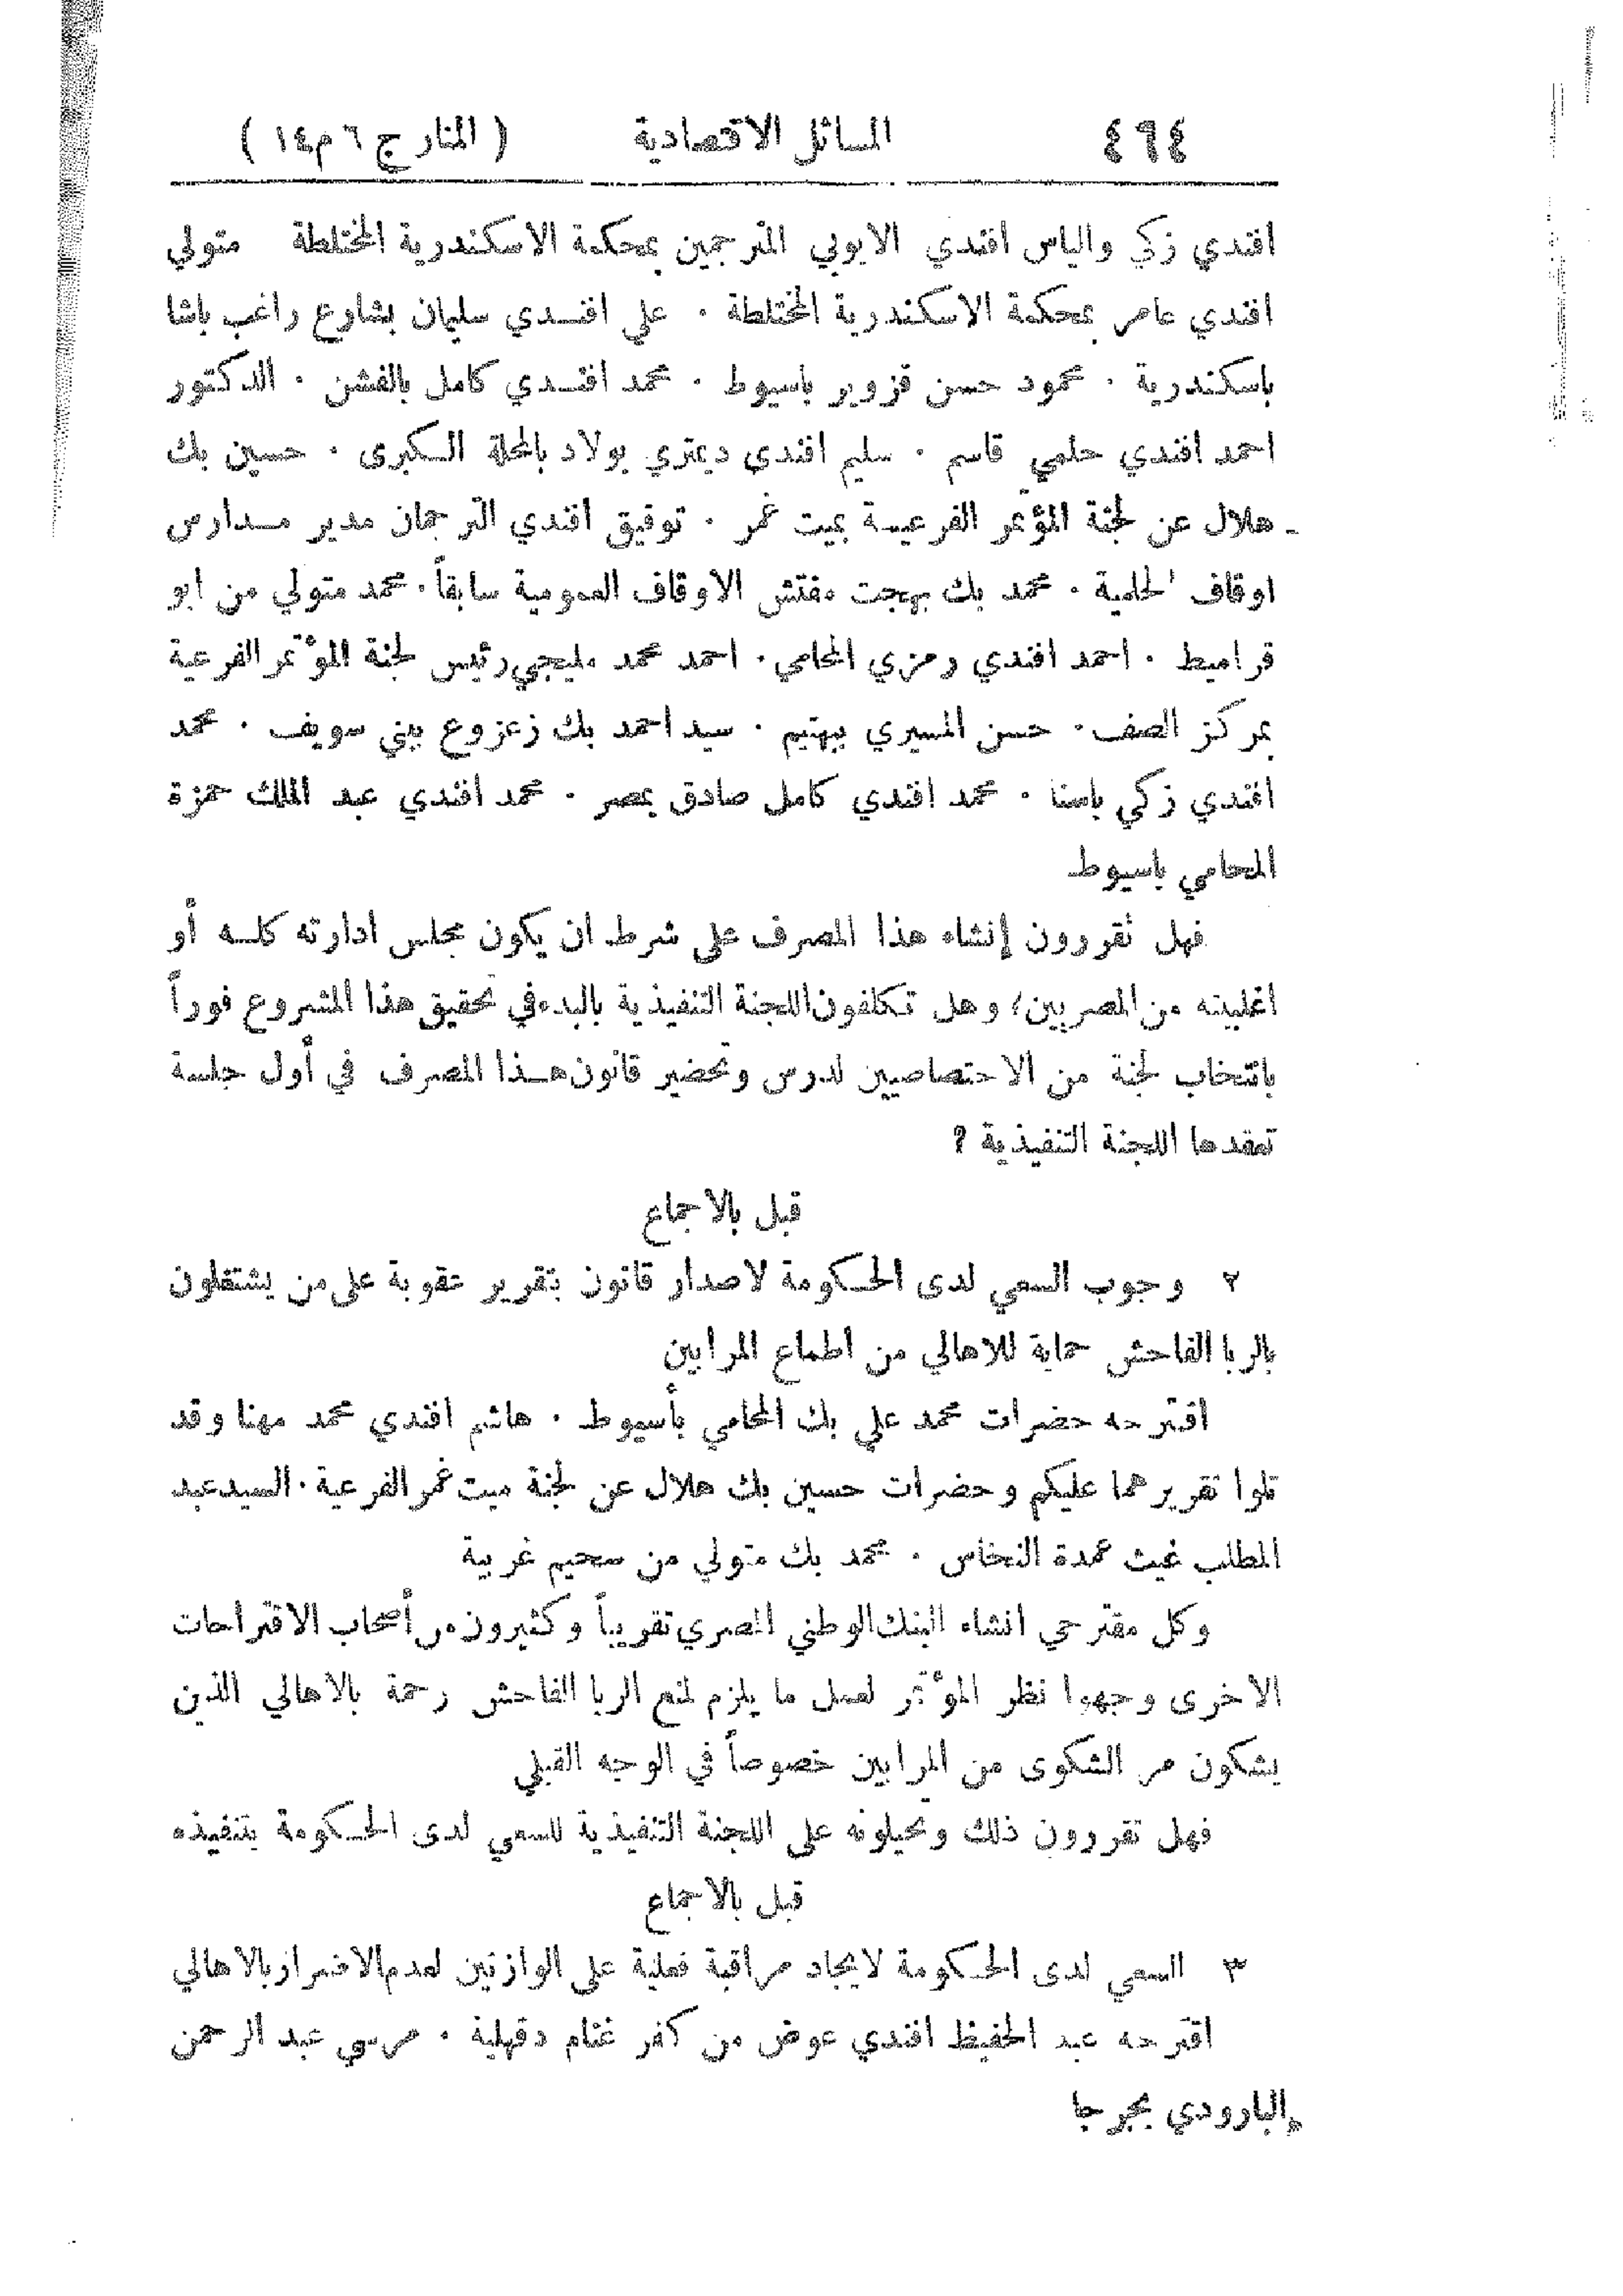 ٤٦٤ المسائل الاقتصادية ( المنار ج ٦ م ١٤ )
افندي زكي والياس افندي الايوبي المترجمين بمحكمة الاسكندرية المختلطة متولي
افندي عامر بمحكمة الاسكندرية المختلطة . علي افندي سليمان بشارع راغب باشا
باسكندرية . محمود حسن قزوير باسيوط . محمد افندي كامل بالفشن . الدكتور
احمد افندي حلمي قاسم . سليم افندي ديمتري بولاد بالمحلة الكبرى . حسين بك
هلال عن لجنة المؤتمر الفرعية بميت غمر . توفيق افندي الترجمان مدير مدارس
اوقاف الحلمية . محمد بك بهجت مفتش الاوقاف العمومية سابقاً . محمد متولي من ابو
قراميط . احمد افندي رمزي المحامي . احمد محمد مليجي رئيس لجنة المؤتمر الفرعية
بمركز الصف . حسن المسيري ببهتيم . سيد احمد بك زعزوع ببني سويف . محمد
افندي زكي باسنا . محمد افندي كامل صادق بمصر . محمد افندي عبد الملك حمزة
المحامي باسيوط
فهل تقررون إنشاء هذا المصرف على شرط ان يكون مجلس ادارته كله أو
اغلبيته من المصريين؛ وهل تكلفون اللجنة التنفيذية بالبدء في تحقيق هذا المشروع فوراً
بانتخاب لجنة من الاختصاصيين لدرس وتحضير قانون هذا المصرف في أول جلسة
تعقدها اللجنة التنفيذية ؟
قبل بالاجماع
٢ وجوب السعي لدى الحكومة لاصدار قانون بتقرير عقوبة على من يشتغلون
بالربا الفاحش حماية للاهالي من اطماع المرابين
اقترحه حضرات محمد علي بك المحامي بأسيوط . هاشم افندي محمد مهنا وقد
تلوا تقريرهما عليكم وحضرات حسين بك هلال عن لجنة ميت غمر الفرعية . السيد عبد
المطلب غيث عمدة النخاس . محمد بك متولي من سحيم غربية
وكل مقترحي انشاء البنك الوطني المصري تقريباً وكثيرون من أصحاب الاقتراحات
الاخرى وجهوا نظر المؤتمر لعمل ما يلزم لمنع الربا الفاحش رحمة بالاهالي الذين
يشكون مر الشكوى من المرابين خصوصاً في الوجه القبلي
فهل تقررون ذلك وتحيلونه على اللجنة التنفيذية للسعي لدى الحكومة بتنفيذه
قبل بالاجماع
٣ السعي لدى الحكومة لايجاد مراقبة فعلية على الوازنين لعدم الاضرار بالاهالي
اقترحه عبد الحفيظ افندي عوض من كفر غنام دقهلية . مرسي عبد الرحمن
البارودي بجرجا